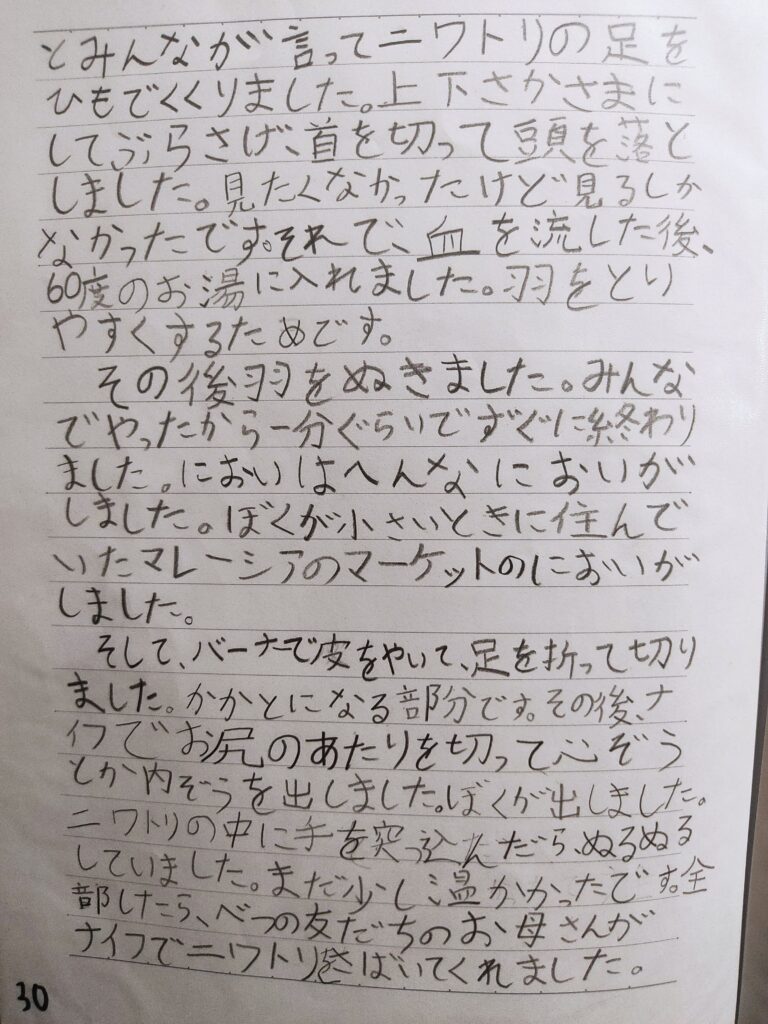 とみんなが言ってニワトリの足を
ひもでくくりました。上下さかさまに
してぶらさげ、首を切って頭を落と
しました。見たくなかったけど見るしか
なかったです。それで、血を流した後、
60度のお湯に入れました。羽をとり
やすくするためです。
その後羽をぬきました。みんな
でやったから一分ぐらいですぐに終わり
ました。においはへんなにおいが
しました。ぼくが小さいときに住んで
いたマレーシアのマーケットのにおいが
しました。
そして、バーナーで皮をやいて、足を折って切り
ました。かかとになる部分です。その後、ナ
イフでお尻のあたりを切って心ぞう
とか内ぞうを出しました。ぼくが出しました。
ニワトリの中に手を突っ込んだら、ぬるぬる
していました。まだ少し温かかったです。全
部したら、べつの友だちのお母さんが
ナイフでニワトリをさばいてくれました。
30